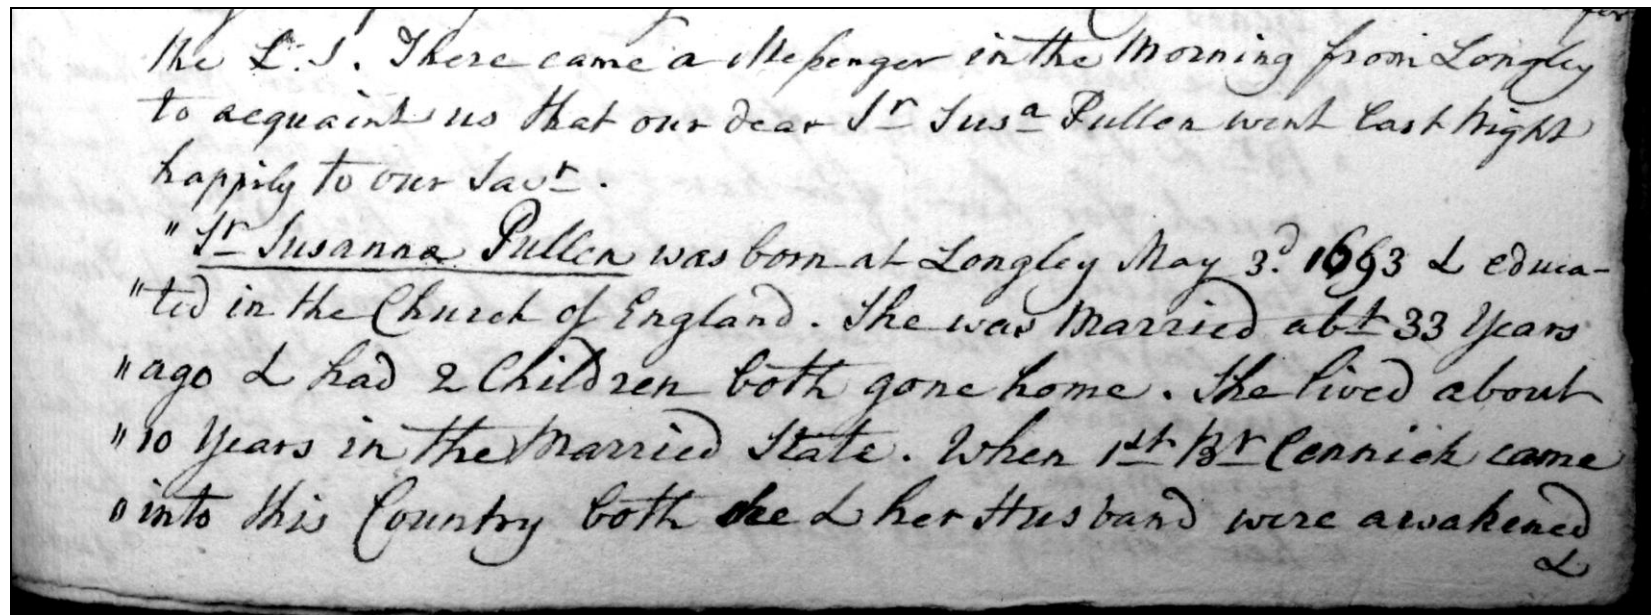 for
the L. S. There came a Messenger in the Morning from Longley
to acquaint us that our dear Sr Susa Pullen went last Night
happily to our Savr.
" Sr Susanna Pullen was born at Longley May 3d. 1693 & educa-
" ted in the Church of England. She was Married abt 33 Years
" ago & had 2 Children both gone home. She lived about
" 10 Years in the Married State. When 1st Br Cennick came
" into this Country both she & her Husband were awakened
&